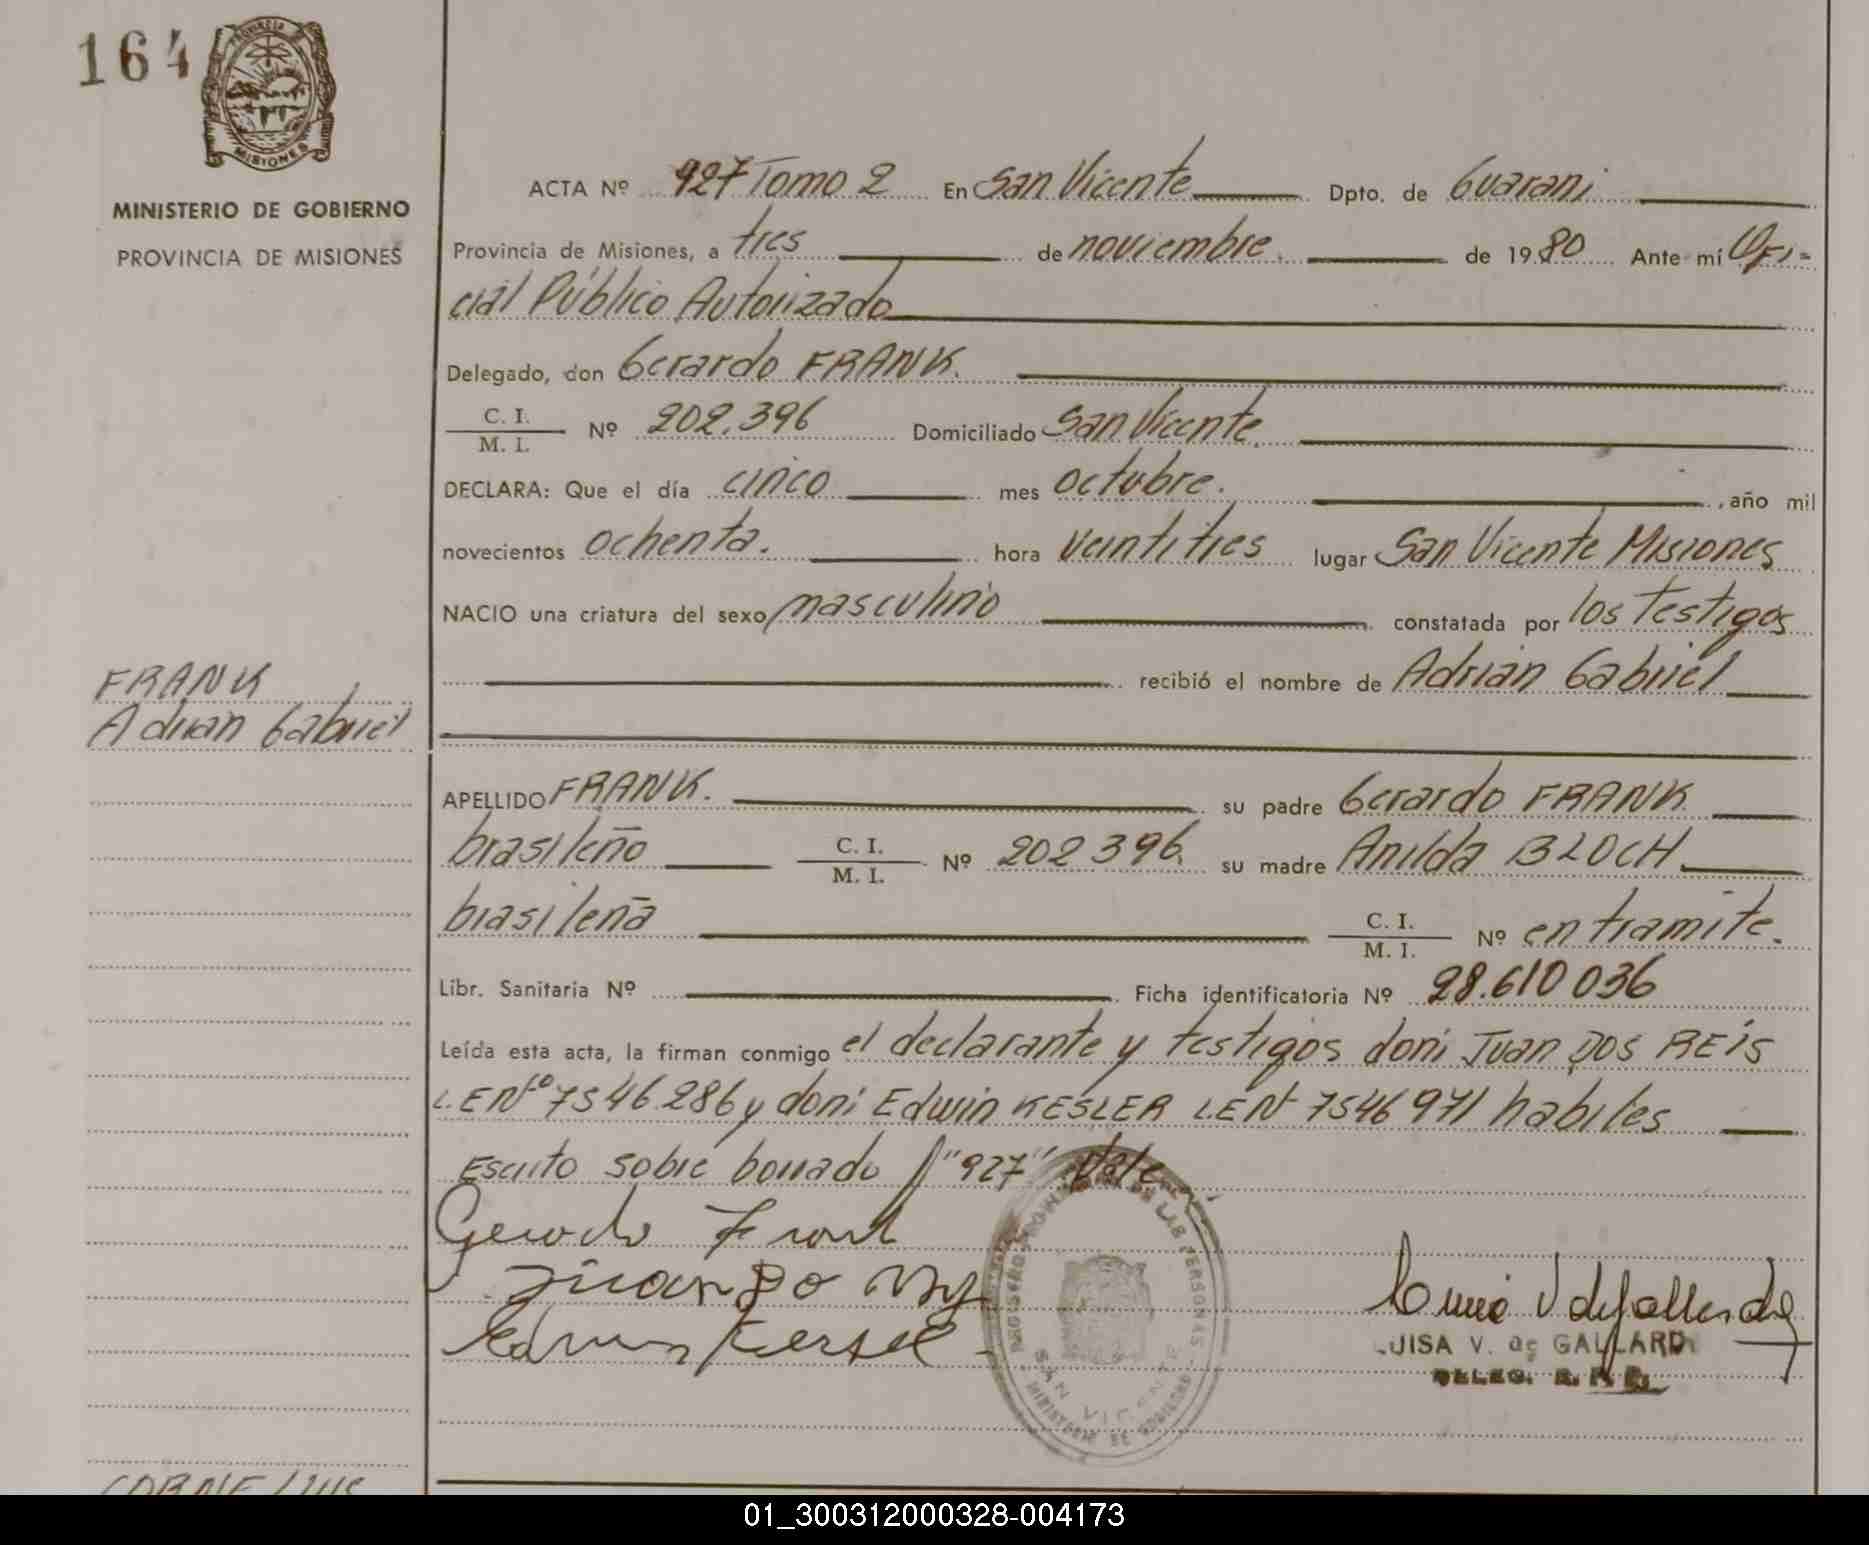 164
PROVINCIA DE
MISIONES
MINISTERIO DE GOBIERNO
PROVINCIA DE MISIONES
ACTA Nº 927 Tomo 2 En San Vicente Dpto. de Guarani
Provincia de Misiones, a tres de noviembre. de 1980 Ante mí Ofi-
cial Público Autorizado
Delegado, don Gerardo FRANK.
C. I.
M. I. Nº 202.396 Domiciliado San Vicente.
DECLARA: Que el día cinco mes octubre. , año mil
novecientos ochenta. hora veintitres lugar San Vicente Misiones
NACIO una criatura del sexo masculino constatada por los testigos
recibió el nombre de Adrián Gabriel
FRANK
Adrian Gabriel
APELLIDO FRANK. su padre Gerardo FRANK.
brasileño C. I.
M. I. Nº 202396. su madre Anilda BLOCH.
brasileña C. I.
M. I. Nº en tramite.
Libr. Sanitaria Nº Ficha identificatoria Nº 28.610 036
Leída esta acta, la firman conmigo el declarante y testigos don: Juan DOS REIS
L.E Nº 7546.286 y don: Edwin KESLER L.E Nº 7546 971 habiles
Escrito sobre borrado "927" Vale
Gerardo Frank
REGISTRO PROVINCIAL DE LAS PERSONAS
SAN VICENTE
MINISTERIO DE GOBIERNO
LUISA V. de GALLARDO
DELEG. R. P. P.
CORNELIUS
01_300312000328-004173